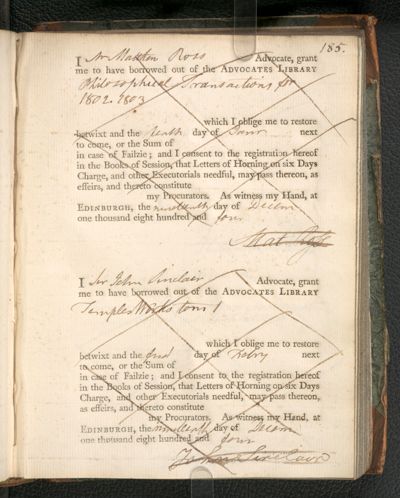 185.
I Mr Matthew Ross Advocate, grant
me to have borrowed out of the ADVOCATES LIBRARY
Philosophical Transactions for
1802. 1803
which I oblige me to restore
betwixt and the tenth day of Janr next
to come, or the Sum of
in case of Failzie; and I consent to the registration hereof
in the Books of Session, that Letters of Horning on six Days
Charge, and other Executorials needful, may pass thereon, as
effeirs, and thereto constitute
my Procurators. As witness my Hand, at
EDINBURGH, the nineteenth day of Decem
one thousand eight hundred and four
Mat Ross
I Sir John Sinclair Advocate, grant
me to have borrowed out of the ADVOCATES LIBRARY
Temples Works tom 1
which I oblige me to restore
betwixt and the day of Febry next
to come, or the Sum of
in case of Failzie; and I consent to the registration hereof
in the Books of Session, that Letters of Horning on six Days
Charge, and other Executorials needful, may pass thereon,
as effeirs, and thereto constitute
my Procurators. As witness my Hand, at
EDINBURGH, the nineteenth day of Decem
one thousand eight hundred and four
John Sinclair